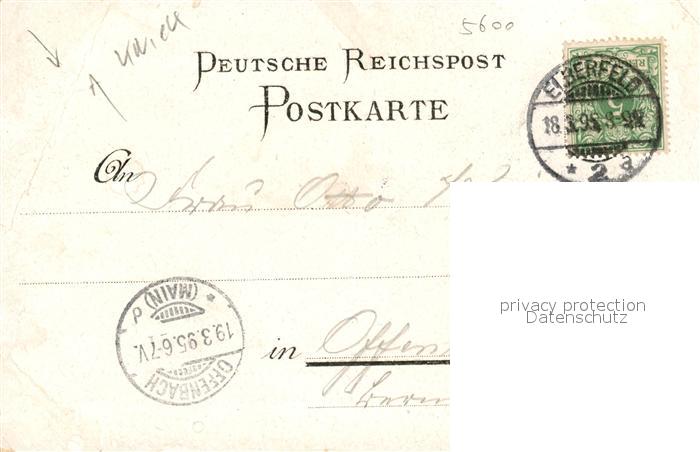 5600
DEUTSCHE REICHSPOST
POSTKARTE
ELBERFELD
18.3.95.8-9N.
* 2 a
5
An Frau Otto
privacy protection
Datenschutz
(MAIN)
19.3.95.6-7V.
OFFENBACH
in Offen